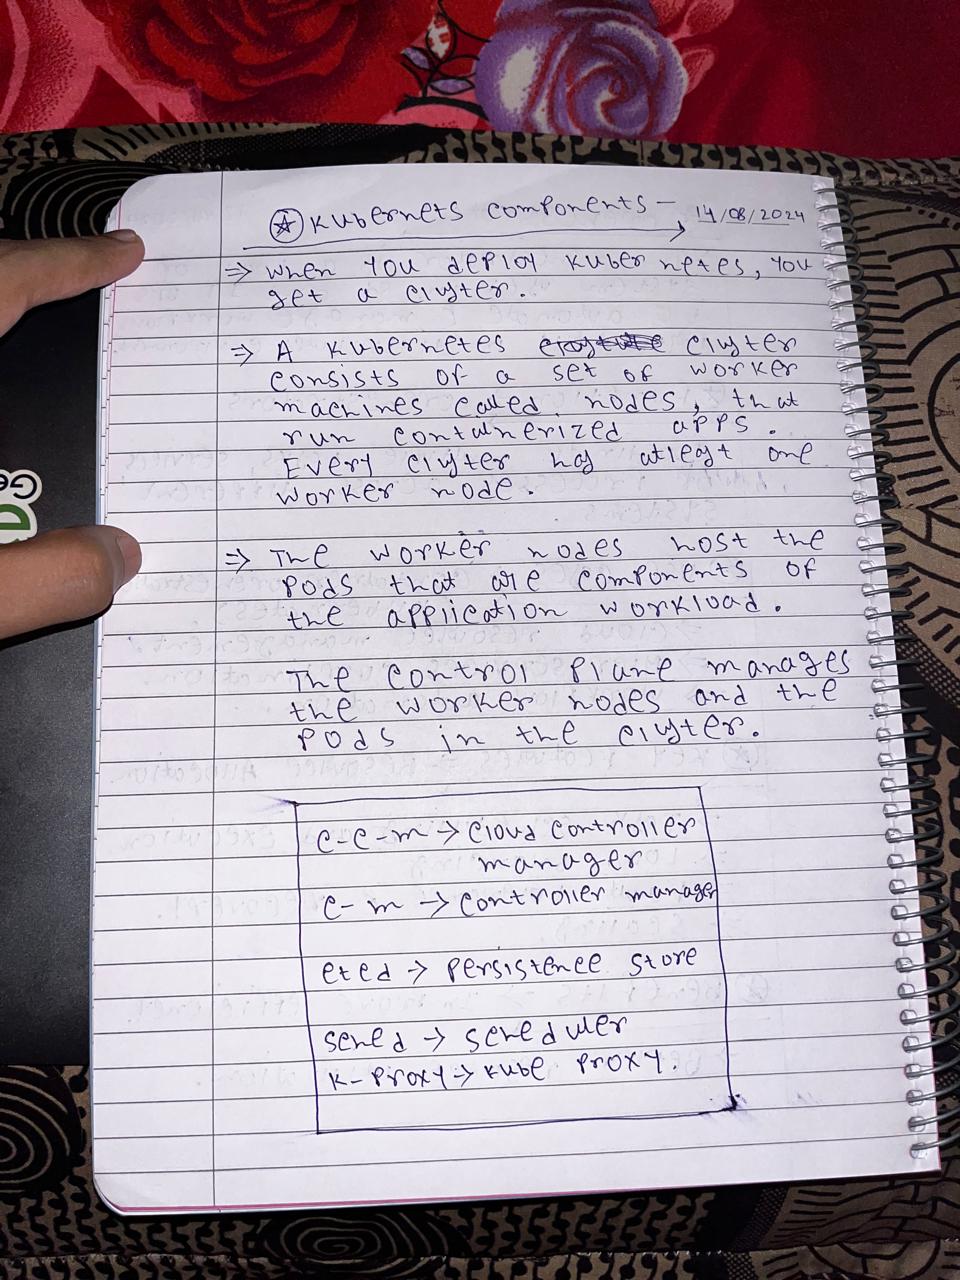 Kubernets components - 14/08/2024
⇒ When you deploy Kubernetes, you
get a cluster.
⇒ A Kubernetes cluster
consists of a set of worker
machines called nodes, that
run containerized apps.
Every cluster has atleast one
worker node.
⇒ The worker nodes host the
pods that are components of
the application workload.
The control plane manages
the worker nodes and the
pods in the cluster.
c-c-m → cloud controller
manager
c-m → controller manager
etcd → persistence store
sched → scheduler
K-proxy → kube proxy.